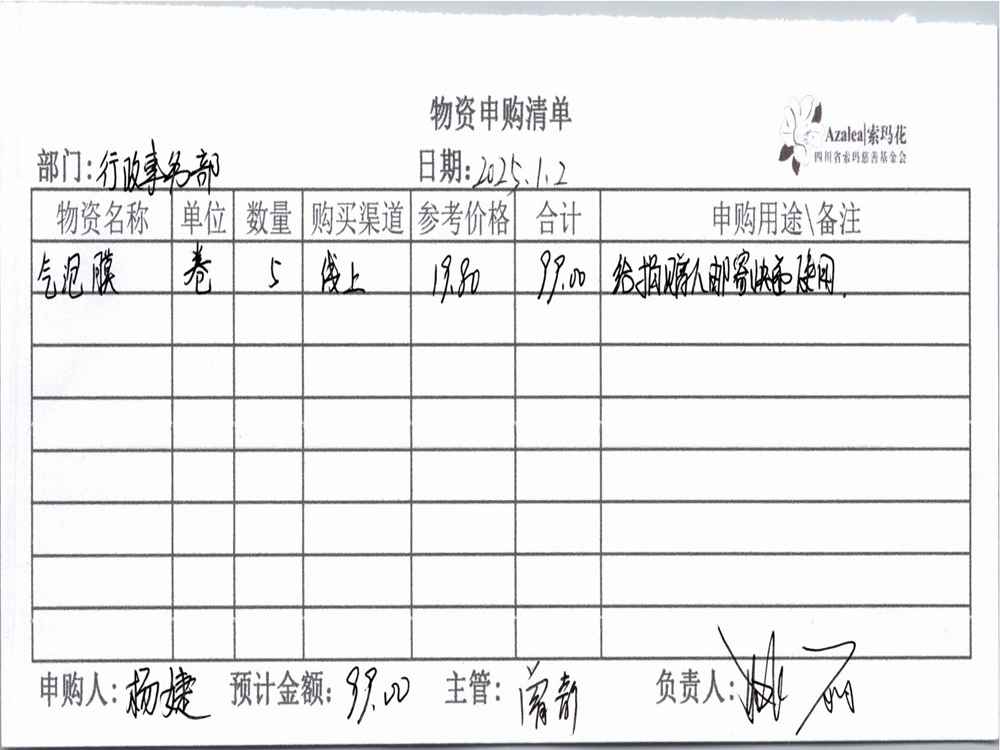 物资申购清单
Azalea|索玛花
四川省索玛慈善基金会
部门:行政事务部 日期:2025.1.2
物资名称 单位 数量 购买渠道 参考价格 合计 申购用途\备注
气泡膜 卷 5 线上 19.80 99.00 给捐赠人邮寄快递使用.
申购人:杨婕 预计金额:99.00 主管: 负责人: